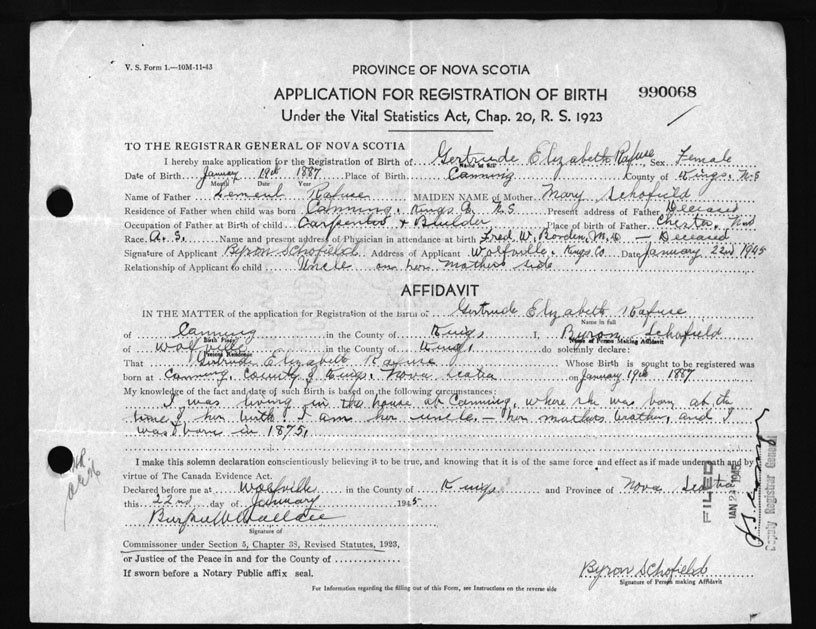 V. S. Form 1.—10M-11-43
PROVINCE OF NOVA SCOTIA
APPLICATION FOR REGISTRATION OF BIRTH 990068
Under the Vital Statistics Act, Chap. 20, R. S. 1923
TO THE REGISTRAR GENERAL OF NOVA SCOTIA
I hereby make application for the Registration of Birth of Gertrude Elizabeth Rafuse Sex Female
Name in full
Date of Birth January 19th 1887 Place of Birth Canning County of Kings, N.S
Month Date Year
Name of Father Lemuel Rafuse MAIDEN NAME of Mother Mary Schofield
Residence of Father when child was born Canning, Kings Co. N.S Present address of Father Deceased
Occupation of Father at Birth of child Carpenter & Builder Place of birth of Father Chester,
Race Name and present address of Physician in attendance at birth Fred. W. Borden, M.D — Deceased
Signature of Applicant Byron Schofield Address of Applicant Wolfville, Kings Co Date January 22nd 1945
Relationship of Applicant to child Uncle on her mothers side
AFFIDAVIT
IN THE MATTER of the application for Registration of the Birth of Gertrude Elizabeth Rafuse
Name in full
of Canning in the County of Kings I, Byron Schofield
Birth Place Name of Person Making Affidavit
of Wolfville in the County of Kings, do solemnly declare:
Present Residence
That Gertrude Elizabeth Rafuse Whose Birth is sought to be registered was
born at Canning, County of Kings, Nova Scotia on January 19th 1887
My knowledge of the fact and date of such Birth is based on the following circumstances:
I was living in the house at Canning, where she was born at the
time of her birth. I am her uncle — her mothers brother, and I
was born in 1875,
I make this solemn declaration conscientiously believing it to be true, and knowing that it is of the same force and effect as if made under oath and by
virtue of The Canada Evidence Act.
Declared before me at Wolfville in the County of Kings and Province of Nova Scotia
this 22nd day of January 1945
Wallace
Signature of
Commissioner under Section 5, Chapter 38, Revised Statutes, 1923,
or Justice of the Peace in and for the County of
If sworn before a Notary Public affix seal.
Byron Schofield
Signature of Person making Affidavit
For Information regarding the filling out of this Form, see Instructions on the reverse side
FILED
JAN 24 1945
Deputy Registrar General